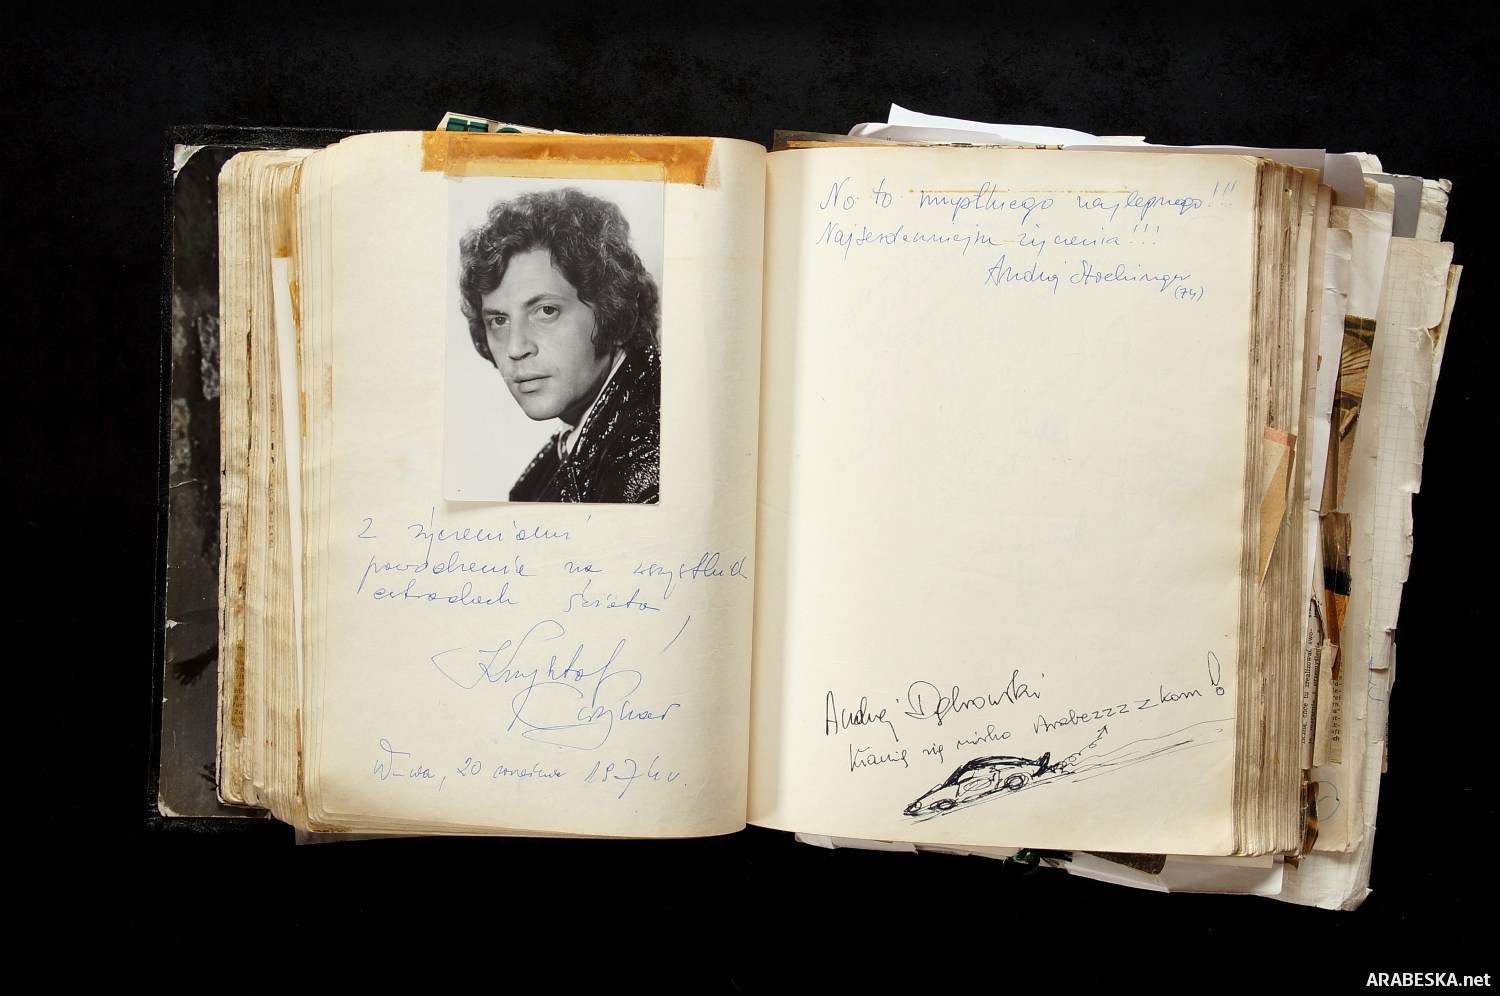 Z życzeniami
powodzenia na wszystkich
estradach świata
Krzysztof
Cwynar
W-wa, 20 września 1974 r.
No to wszystkiego najlepszego!!!
Najserdeczniejsze życzenia!!!
Andrzej Stockinger
(74)
Andrzej Dąbrowski
Kłanię się nisko Arabezzz z kom!
ARABESKA.net